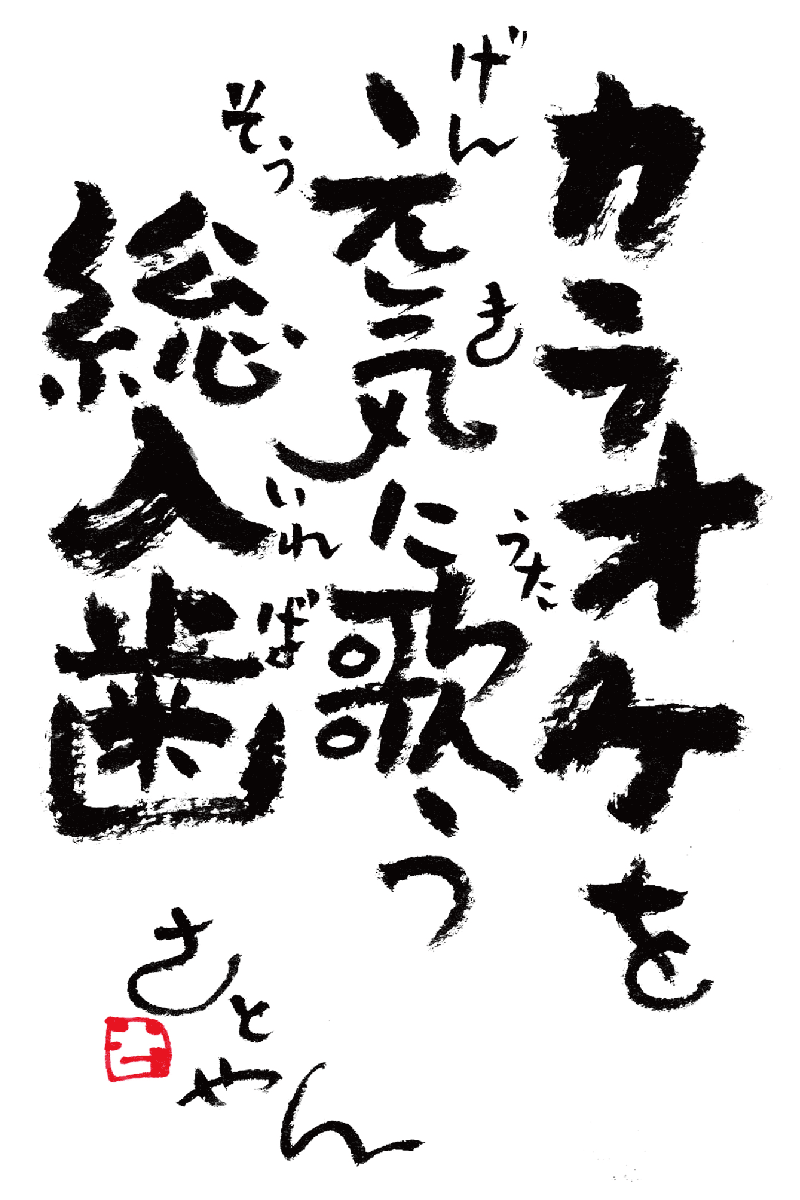 カラオケを
げんき
元気に歌う
うた
そういれば
総入歯
さとやん